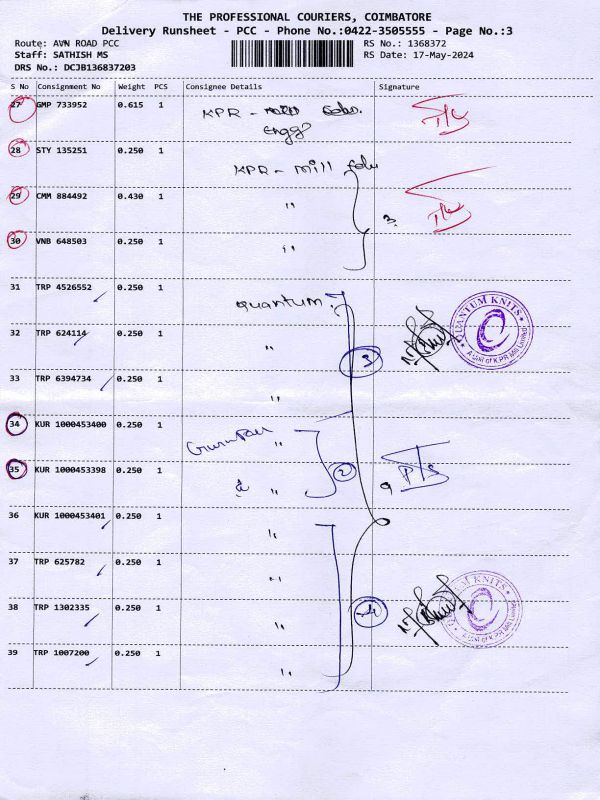 THE PROFESSIONAL COURIERS, COIMBATORE
Delivery Runsheet - PCC - Phone No.:0422-3505555 - Page No.:3
Route: AVN ROAD PCC
RS No.: 1368372
Staff: SATHISH MS
RS Date: 17-May-2024
DRS No.: DCJB136837203
S No Consignment No Weight PCS Consignee Details Signature
27 GMP 733952 0.615 1 KPR -
Engg
28 STY 135251 0.250 1 KPR - Mill
29 CMM 884492 0.430 1 "
3
30 VNB 648503 0.250 1 "
31 TRP 4526552 0.250 1 Quantum
QUANTUM KNITS
A Unit of K.P.R Mill Limited
32 TRP 624114 0.250 1 "
3
33 TRP 6394734 0.250 1 "
34 KUR 1000453400 0.250 1 "
35 KUR 1000453398 0.250 1 "
2
9
36 KUR 1000453401 0.250 1 "
37 TRP 625782 0.250 1 "
38 TRP 1302335 0.250 1 "
4
QUANTUM KNITS
A Unit of K.P.R Mill Limited
39 TRP 1007200 0.250 1 "